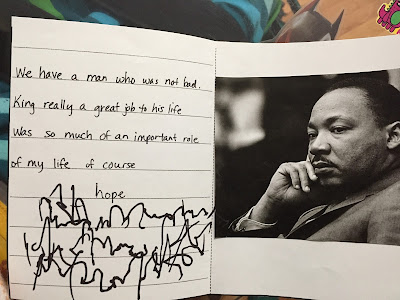 We have a man who was not bad.
King really a great job to his life
was so much of an important role
of my life of course
hope